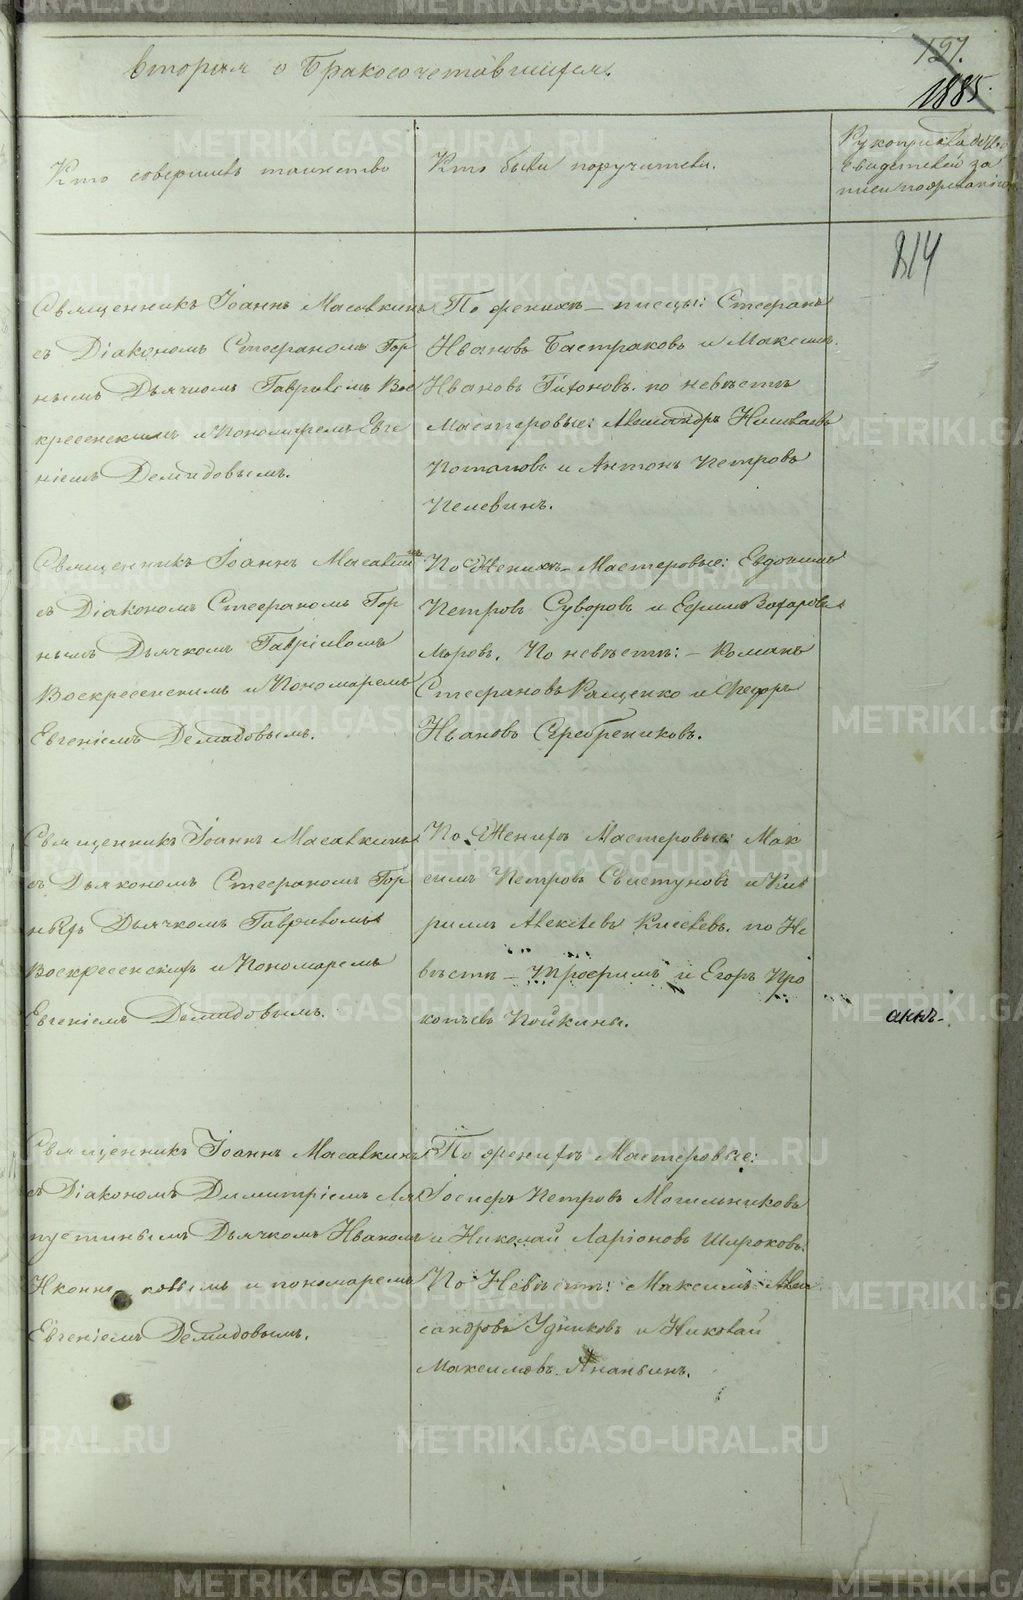 197.
вторая о Бракосочетавшихся.
1885.
Кто совершилъ таинство
Кто были поручители.
Рукоприкладство
Свидетелей за
писи по желанію
814
Священникъ Іоаннъ Масалкинъ
съ Діакономъ Стефаномъ Гор
нымъ Дьячкомъ Гавриломъ Вос
кресенскимъ и Пономаремъ Евге
ніемъ Демидовымъ.
По женихѣ – писцы: Стефанъ
Ивановъ Бастраковъ и Максимъ
Ивановъ Тихоновъ. по невѣстѣ
Мастеровые: Александръ Николаевъ
Потаповъ и Антонъ Петровъ
Пелевинъ.
Священникъ Іоаннъ Масалкинъ
съ Діакономъ Стефаномъ Гор
нымъ Дьячкомъ Гавріиломъ
Воскресенскимъ и Пономаремъ
Евгеніемъ Демидовымъ.
По Женихѣ – Мастеровые: Евдокимъ
Петровъ Суворовъ и Ефимъ
По невѣстѣ: – Романъ
Стефановъ Ращенко и Федоръ
Ивановъ Серебрениковъ.
Священникъ Іоаннъ Масалкинъ
съ Дьякономъ Стефаномъ Гор
нымъ Дьячкомъ Гавриломъ
Воскресенскимъ и Пономаремъ
Евгеніемъ Демидовымъ.
По Женихѣ Мастеровые: Мак
симъ Петровъ Свистуновъ и Ки
риллъ Алексѣевъ Киселевъ. по Не
вѣстѣ – Трофимъ и Егоръ Про
копьевъ Пойкины.
Священникъ Іоаннъ Масалкинъ
съ Діакономъ Димитріемъ Ля
пустинымъ Дьячкомъ Иваномъ
Иконниковымъ и пономаремъ
Евгеніемъ Демидовымъ.
По женихѣ Мастеровые:
Іосифъ Петровъ Могильниковъ
и Николай Ларіоновъ Широковъ.
По Невѣстѣ: Максимъ Алек
сандровъ Удниковъ и Николай
Максимовъ Ананьинъ.
METRIKI.GASO-URAL.RU